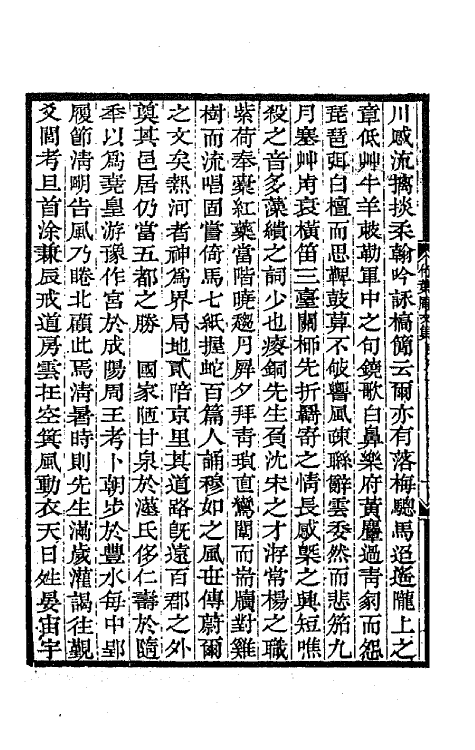 川感流擒掞柔翰吟詠槁簡云爾亦有落梅驄馬迢遙隴上之
章低艸牛羊敕勒軍中之句鐃歌白鼻樂府黃麞過靑豹而怨
琵琶弭白檀而思鞞鼓莫不皴響風疎聯辭雲委然而悲笳九
月塞艸南衰橫笛三臺關桺先折羇寄之情長感槩之興短噍
殺之音多藻繢之詞少也瘦銅先生負沈宋之才游常楊之職
紫荷奉橐紅藥當階曉趨月屏夕拜靑瑣直鸞闈而耑牘對雞
樹而流唱固嘗倚馬七紙握蛇百篇人誦穆如之風世傳蔚爾
之文矣熱河者神爲界局地貳陪京里其道路旣遠百郡之外
奠其邑居仍當五都之勝　國家陋甘泉於漢氏侈仁壽於隨
年以爲堯皇游豫作宮於成陽周王考卜朝步於豐水每中郢
履節淸明告風乃睠北顧此焉淸暑時則先生滿歲灌謁往覲
爻閭考旦首涂兼辰戒道房雲在空箕風動衣天日姓晏宙宇